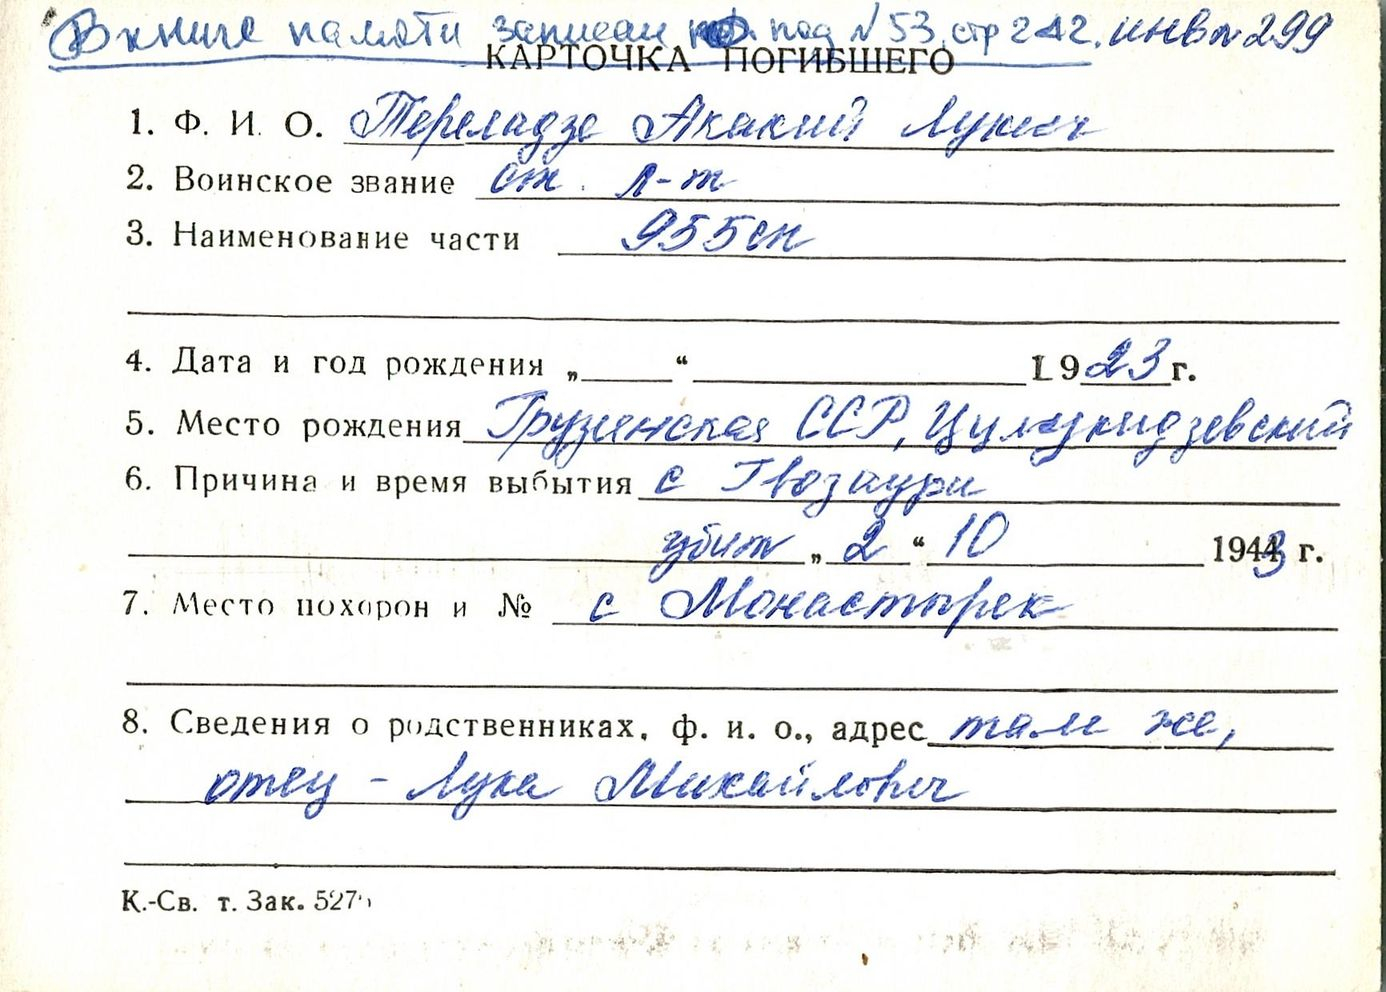 В книге памяти записан под №53, стр 242. инв № 299
КАРТОЧКА ПОГИБШЕГО
1. Ф. И. О. Тереладзе Акакий Лукич
2. Воинское звание ст. л-т
3. Наименование части 955сп
4. Дата и год рождения „ “ 1923 г.
5. Место рождения Грузинская ССР, Цулукидзевский
6. Причина и время выбытия с Гвозаури
убит „ 2 “ 10 1943 г.
7. Место похорон и № с Монастырек
8. Сведения о родственниках, ф. и. о., адрес там же,
отец - Лука Михайлович
К.-Св. т. Зак. 527